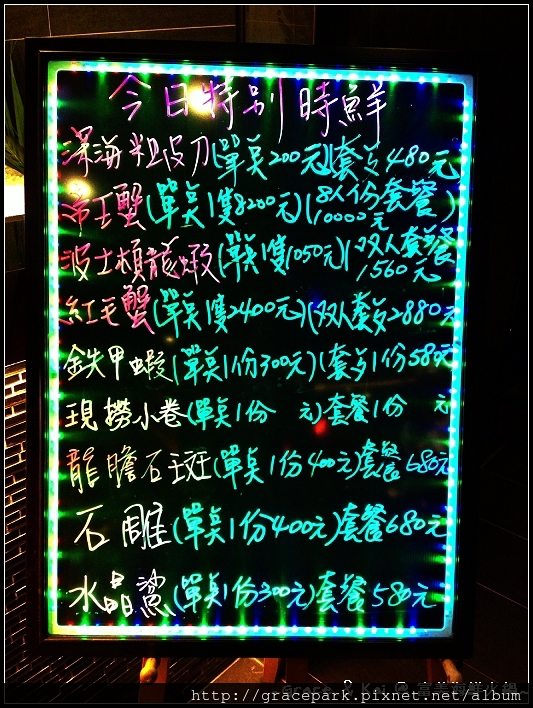 今日特別時鮮
深海粗皮刀(單點200元)(套餐480元
帝王蟹(單點1隻8200元)(8人份套餐10000元)
波士頓龍蝦(單點1隻1050元)(双人套餐1560元
紅毛蟹(單點1隻2400元)(双人套餐2880元
鉄甲蝦(單點1份300元)(套餐1份580元
現撈小卷(單點1份 元)套餐1份 元
龍膽石斑(單點1份400元)套餐680元
石雕(單點1份400元)套餐680元
水晶鯊(單點1份300元)套餐580元
http://gracepark.pixnet.net/album